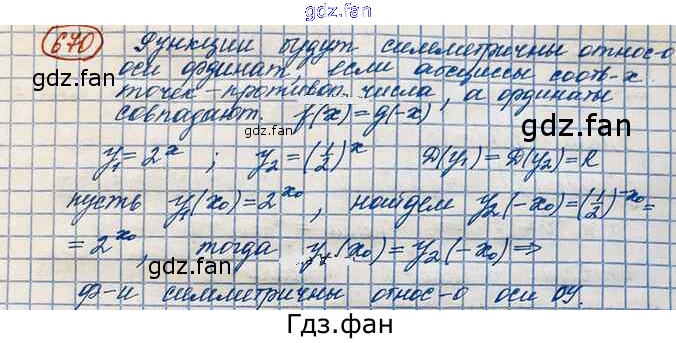 gdz.fan
670 Функции будут симметричны относ-о
gdz.fan
оси ординат, если абсциссы соотв-х
точек - противоп. числа, а ординаты
совпадают. f(x) = g(-x)
gdz.fan
y₁ = 2ˣ ; y₂ = (1/2)ˣ D(y₁) = D(y₂) = R
gdz.fan
пусть y₁(x₀) = 2ˣ⁰, найдем y₂(-x₀) = (1/2)⁻ˣ⁰ =
= 2ˣ⁰, тогда y₁(x₀) = y₂(-x₀) ⇒
gdz.fan
gdz.fan
ф-и симметричны относ-о оси OY.
Гдз.фан